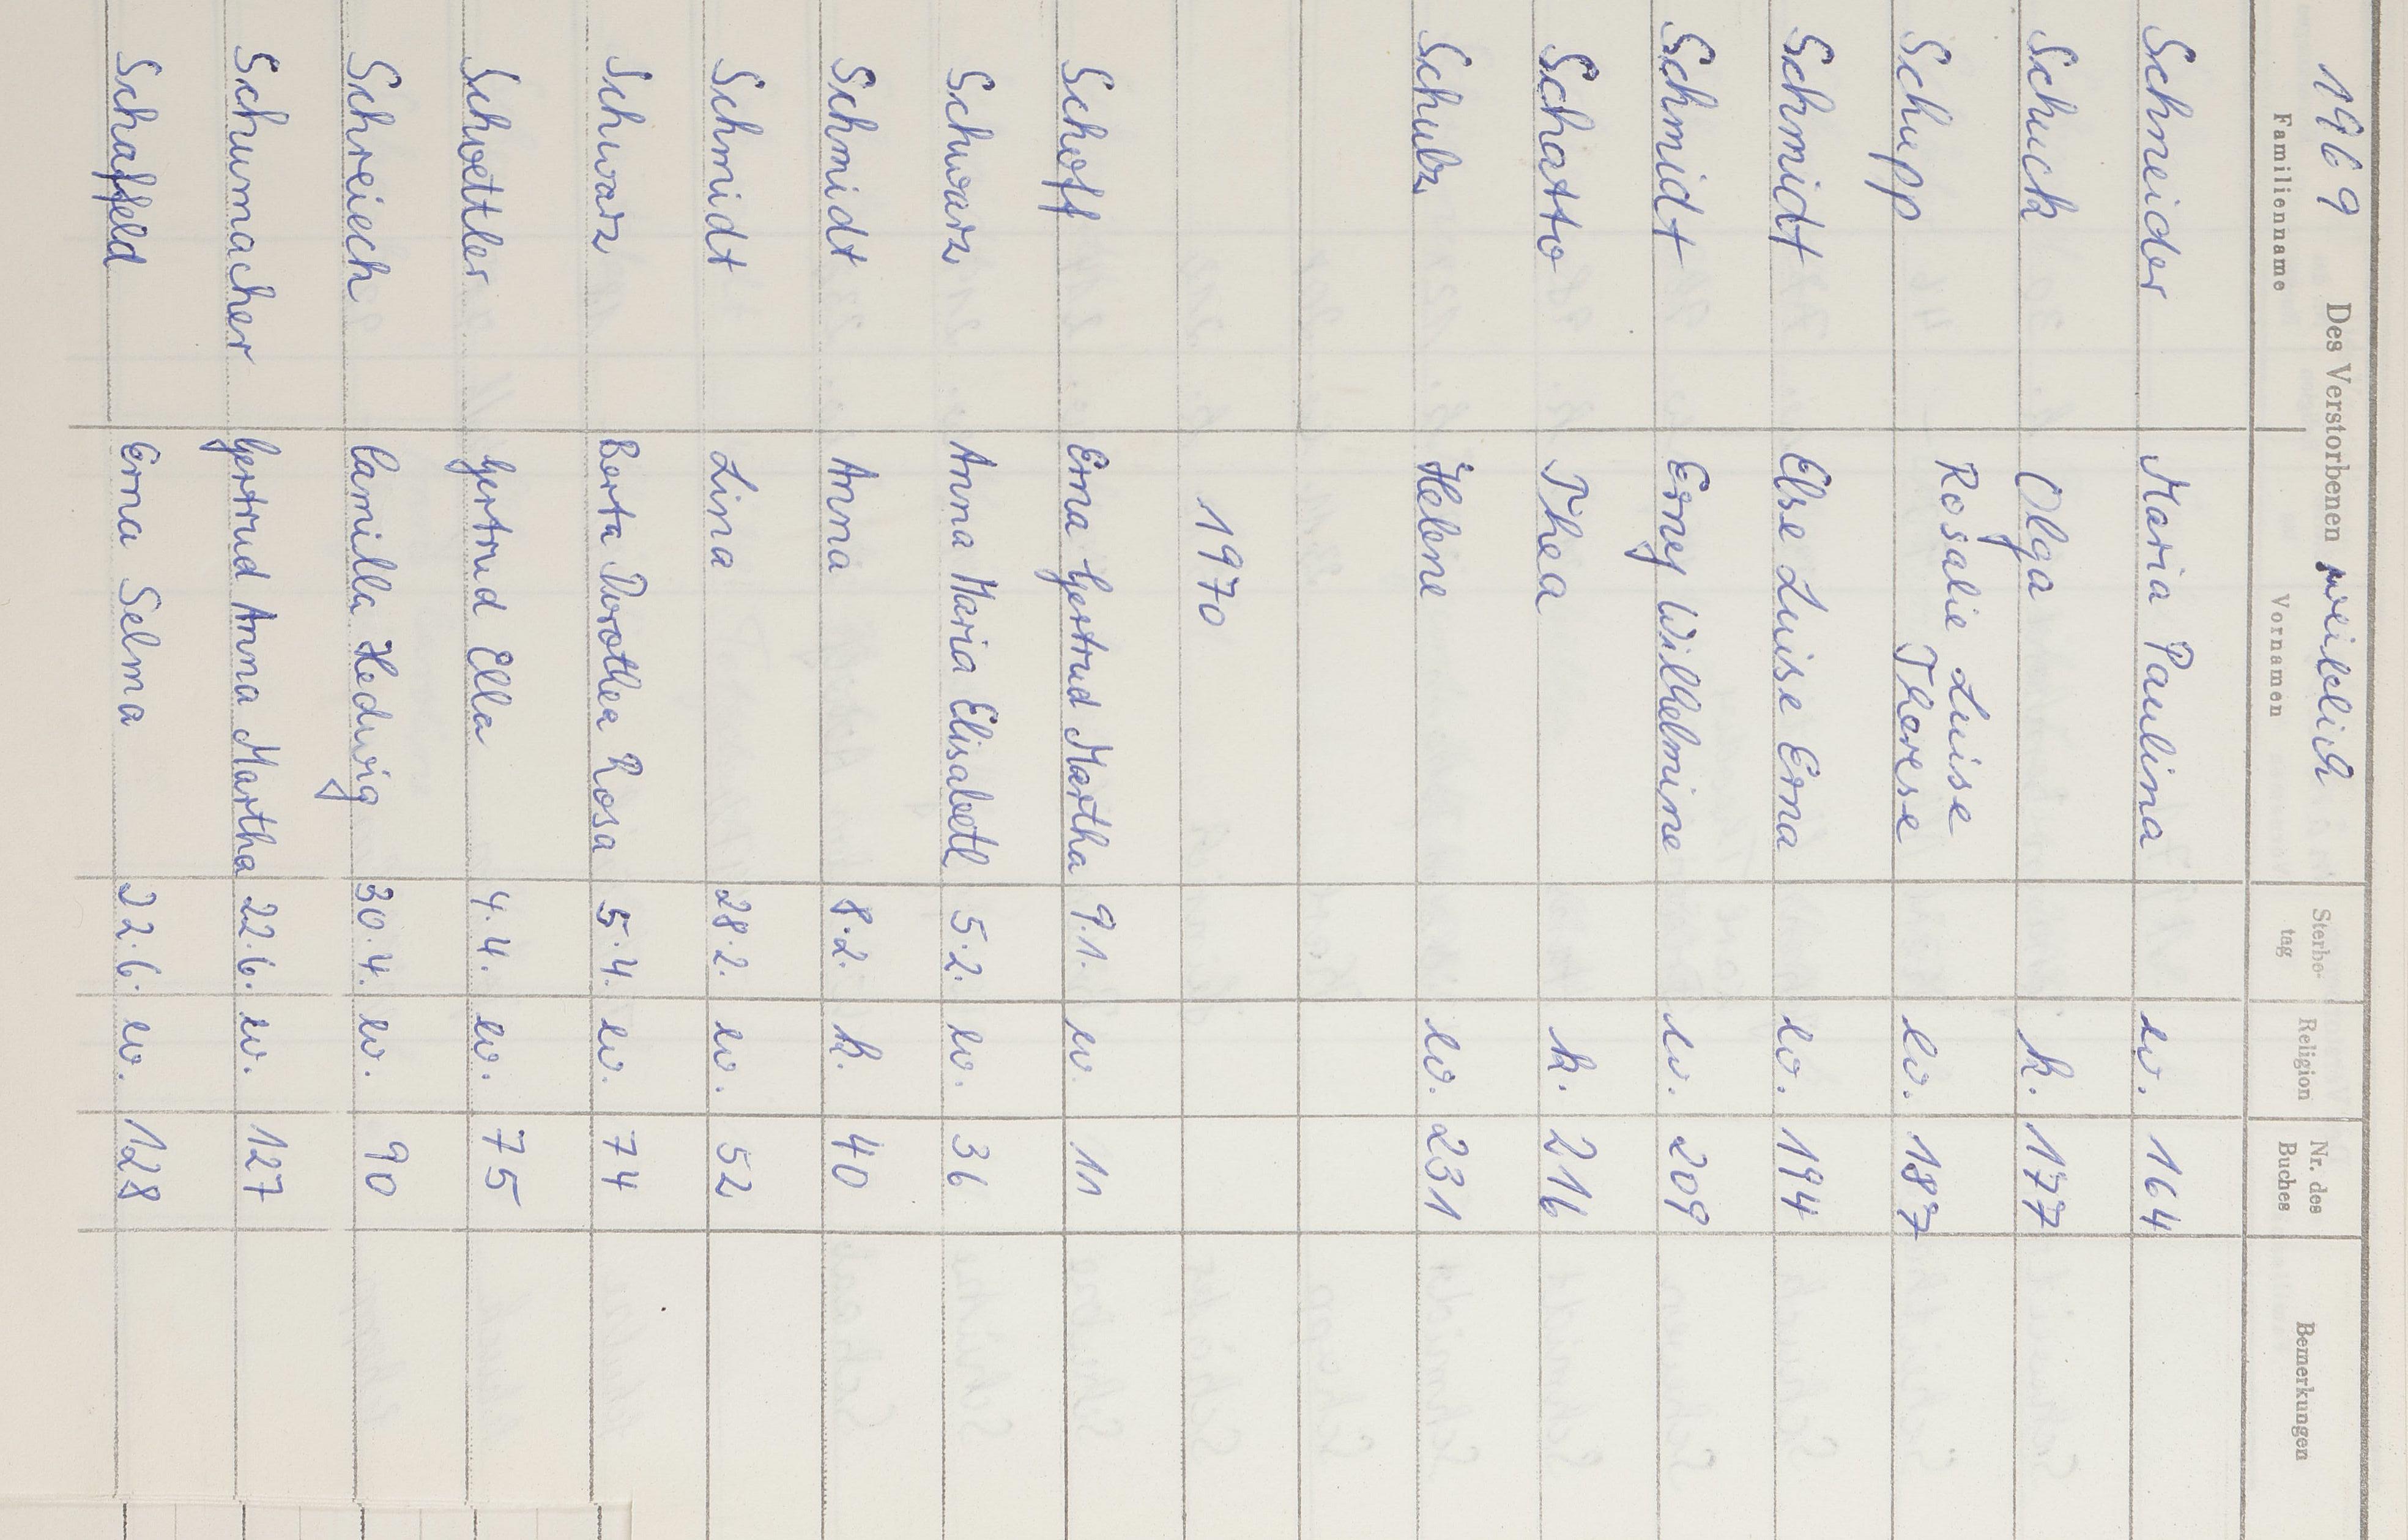 1969 Des Verstorbenen weiblich
Familienname Vornamen Sterbe-tag Religion Nr. des Buches Bemerkungen
Schneider Maria Paulina ev. 164
Schuck Olga k. 177
Rosalie Luise
Schupp Therese ev. 187
Schmidt Else Luise Erna ev. 194
Schmidt Erney Wilhelmine ev. 209
Schatto Thea k. 216
Schulz Helene ev. 231
1970
Schoff Erna Gertrud Martha 9.1. ev. 11
Schwarz Anna Maria Elisabeth 5.2. ev. 36
Schmidt Anna 8.2. k. 40
Schmidt Lina 28.2. ev. 52
Schwarz Berta Dorothea Rosa 5.4. ev. 74
Schoettler Gertrud Ella 4.4. ev. 75
Schreiech Camilla Hedwig 30.4. ev. 90
Schumacher Gertrud Anna Martha 22.6. ev. 127
Schaffeld Erna Selma 22.6. ev. 128